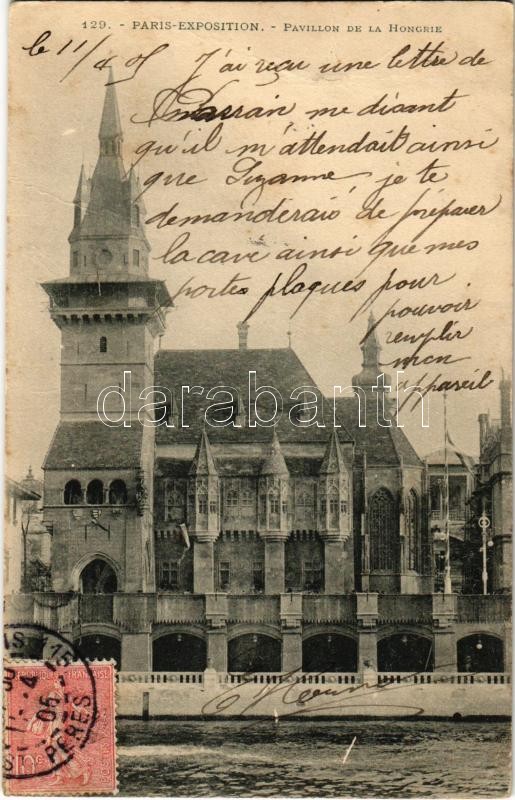 129. - PARIS-EXPOSITION. - PAVILLON DE LA HONGRIE
le 11/4 05 J'ai reçu une lettre de
me disant
qu'il m'attendait ainsi
que Suzanne, je te
demanderais de préparer
la cave ainsi que mes
portes plaques pour
pouvoir
remplir
mon
appareil
darabanth